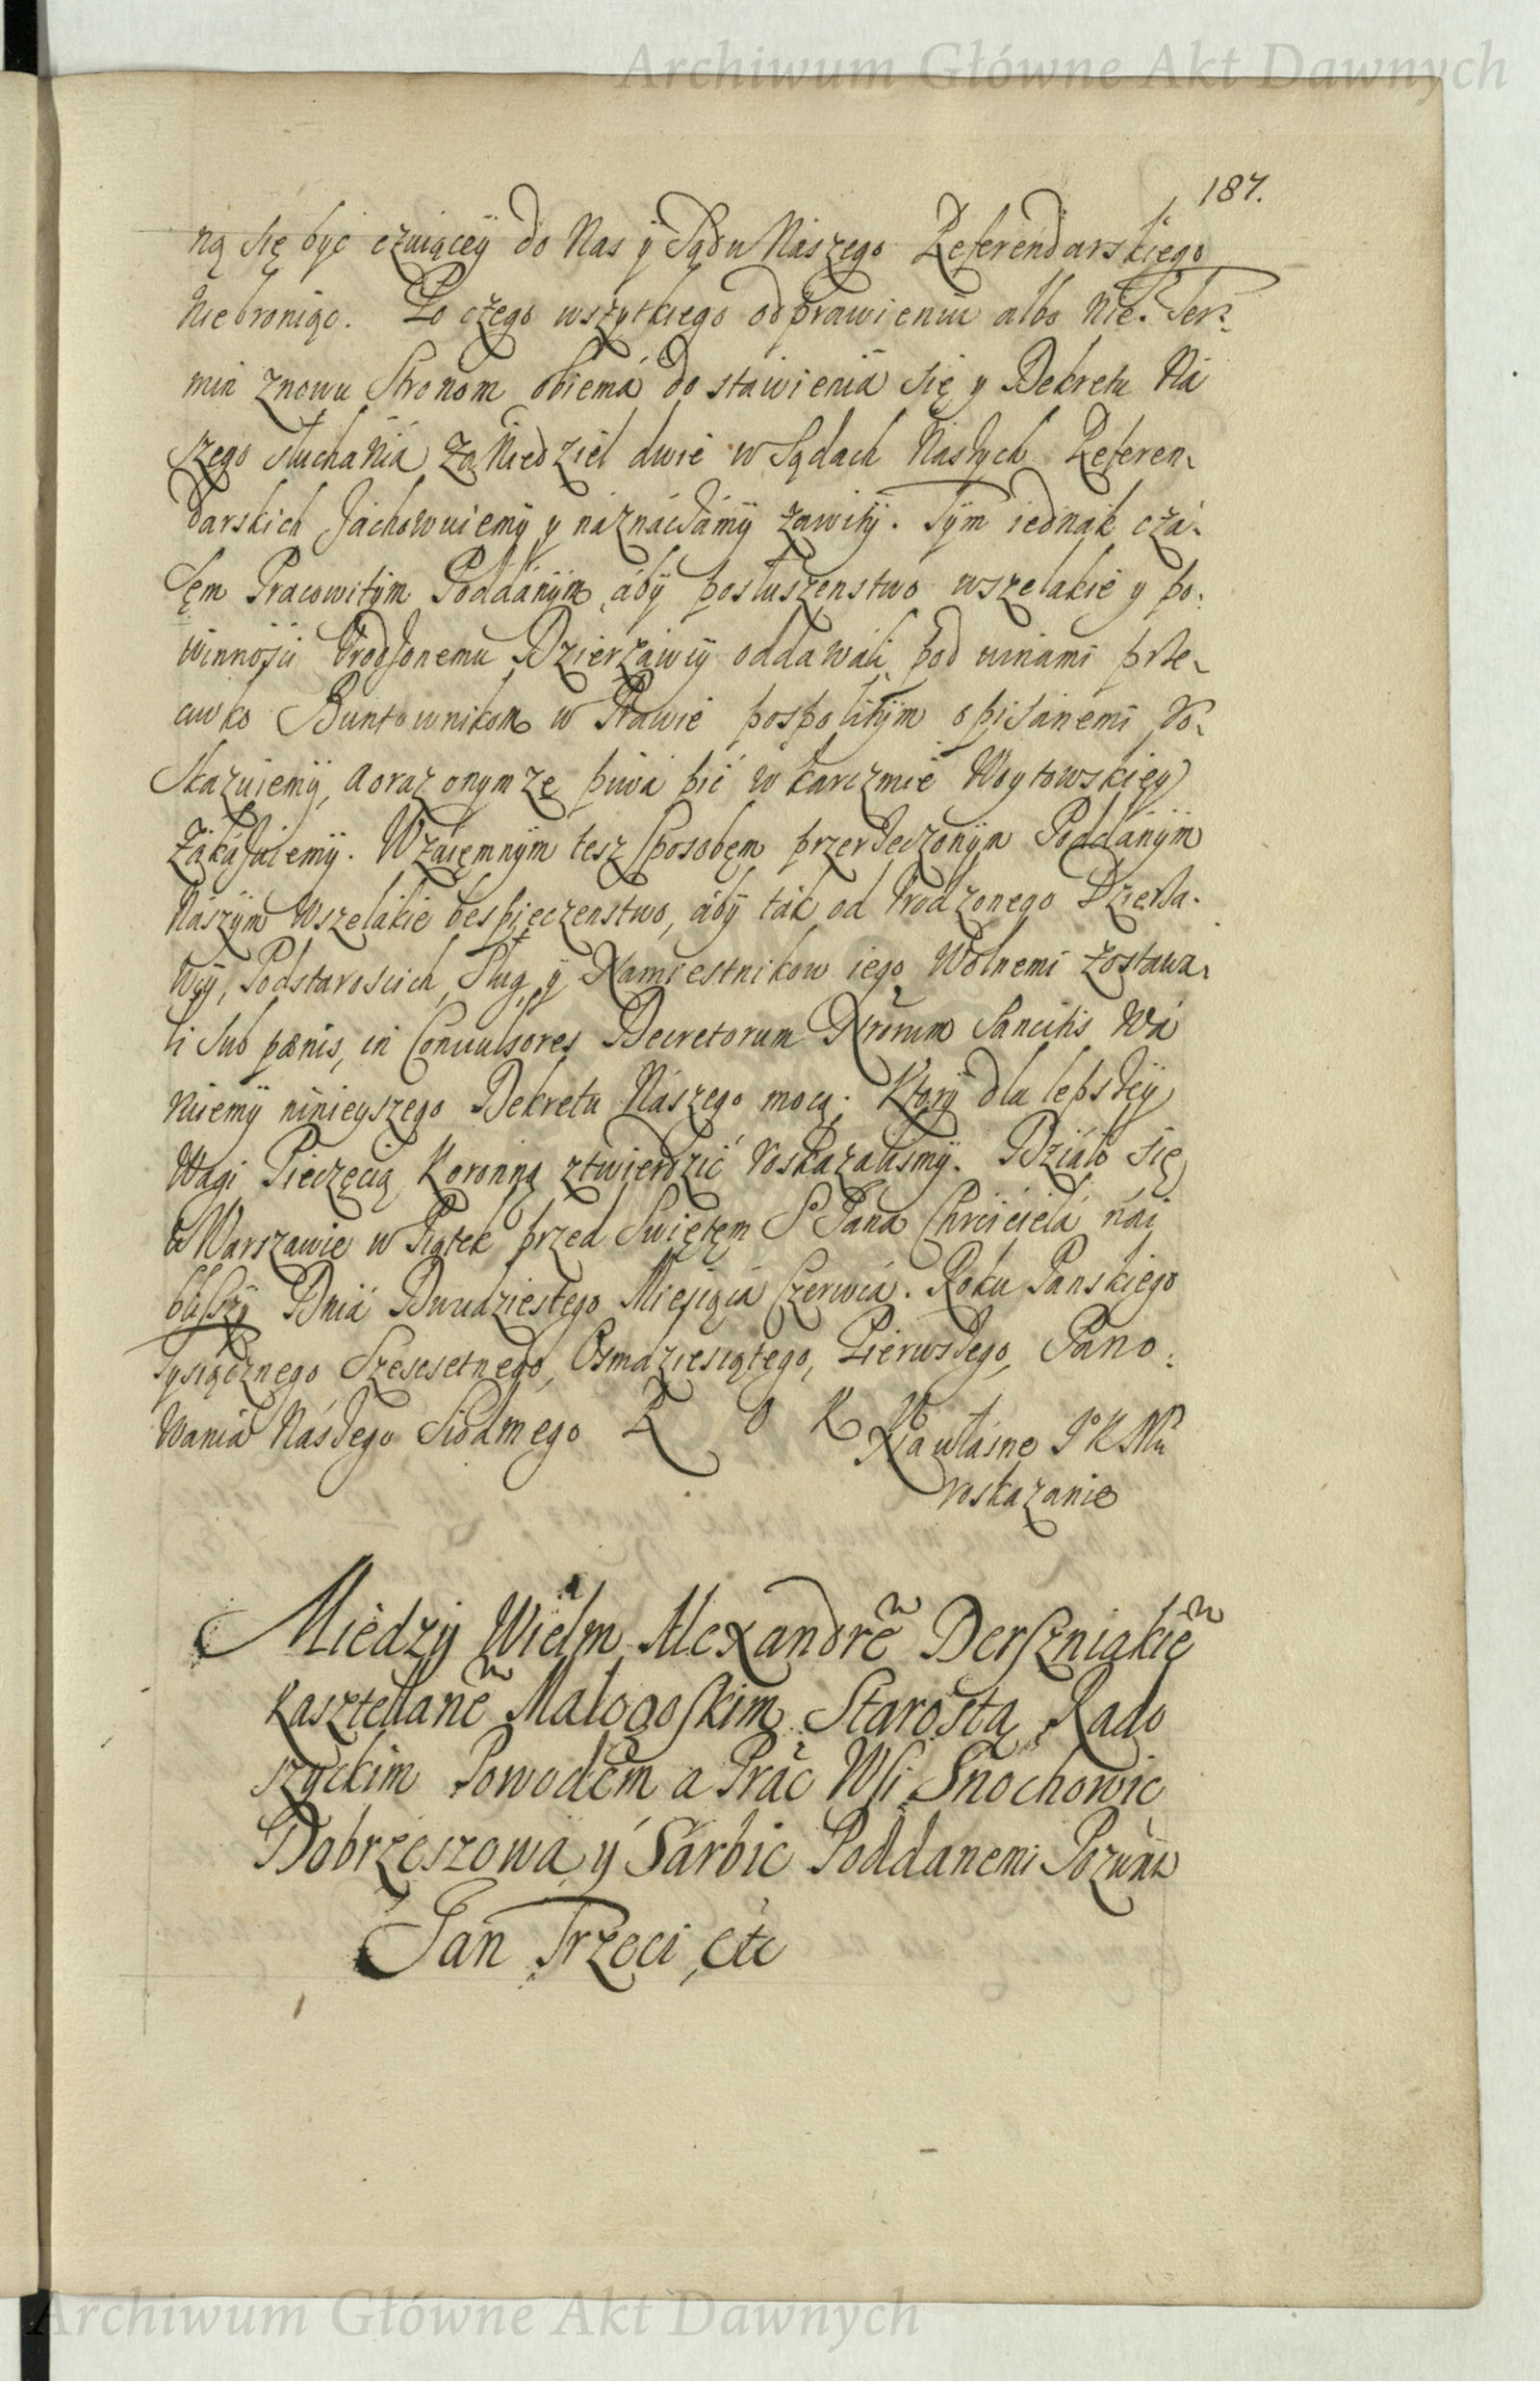 Archiwum Główne Akt Dawnych
187.
ną się być czuiącey do Nas y Sądu Naszego Referendarskiego
Niebroniąc. Po czego wszytkiego odprawieniu albo nie. Ter-
min znowu Stronom obiema do stawienia się y Dekretu Na
szego słuchania za Niedziel dwie w Sądach Naszych Referen-
darskich zachowuiemy y naznaczamy zawity. Tym iednak cza-
sem Pracowitym Poddanym, aby posłuszenstwo wszelakie y po-
winnosci Urodzonemu Dzierzawcy oddawali pod winami prze-
ciwko Buntownikom w Prawie pospolitym opisanemi ros-
skazuiemy, a oraz onymze piwa pić w karczmie Woytowskiey
zakazuiemy. Wzaiemnym tesz sposobem przerzeczonym Poddanym
Naszym wszelakie bespieczenstwo, aby tak od Urodzonego Dzierza-
wcy, Podstaroscich, Sług y Namiestnikow iego Wolnemi zostawa-
li sub pœnis, in Convulsores Decretorum Nrorum Sancitis wa
ruiemy ninieyszego Dekretu Naszego mocą. Ktory dla lepszey
Wagi Pieczęcią Koronną ztwierdzić roskazalismy. Działo się
w Warszawie w Piątek przed Swiętem S° Jana Chrzciciela nay
bliszszy Dnia Dwudziestego Miesiąca Czerwca. Roku Panskiego
Tysiącznego Szescsetnego, Osmdziesiątego, Pierwszego, Pano-
wania Naszego Siodmego R O K Na własne J° K Mci
roskazanie
Miedzy Wielm Alexandrē Derszniakiē
Kasztellanē Małogoskim Starostą Rado
szyckim Powodem a Prac Wsi Snochowic
Dobrzeszowa y Sarbic Poddanemi Pozwan
Jan Trzeci etc
Archiwum Główne Akt Dawnych